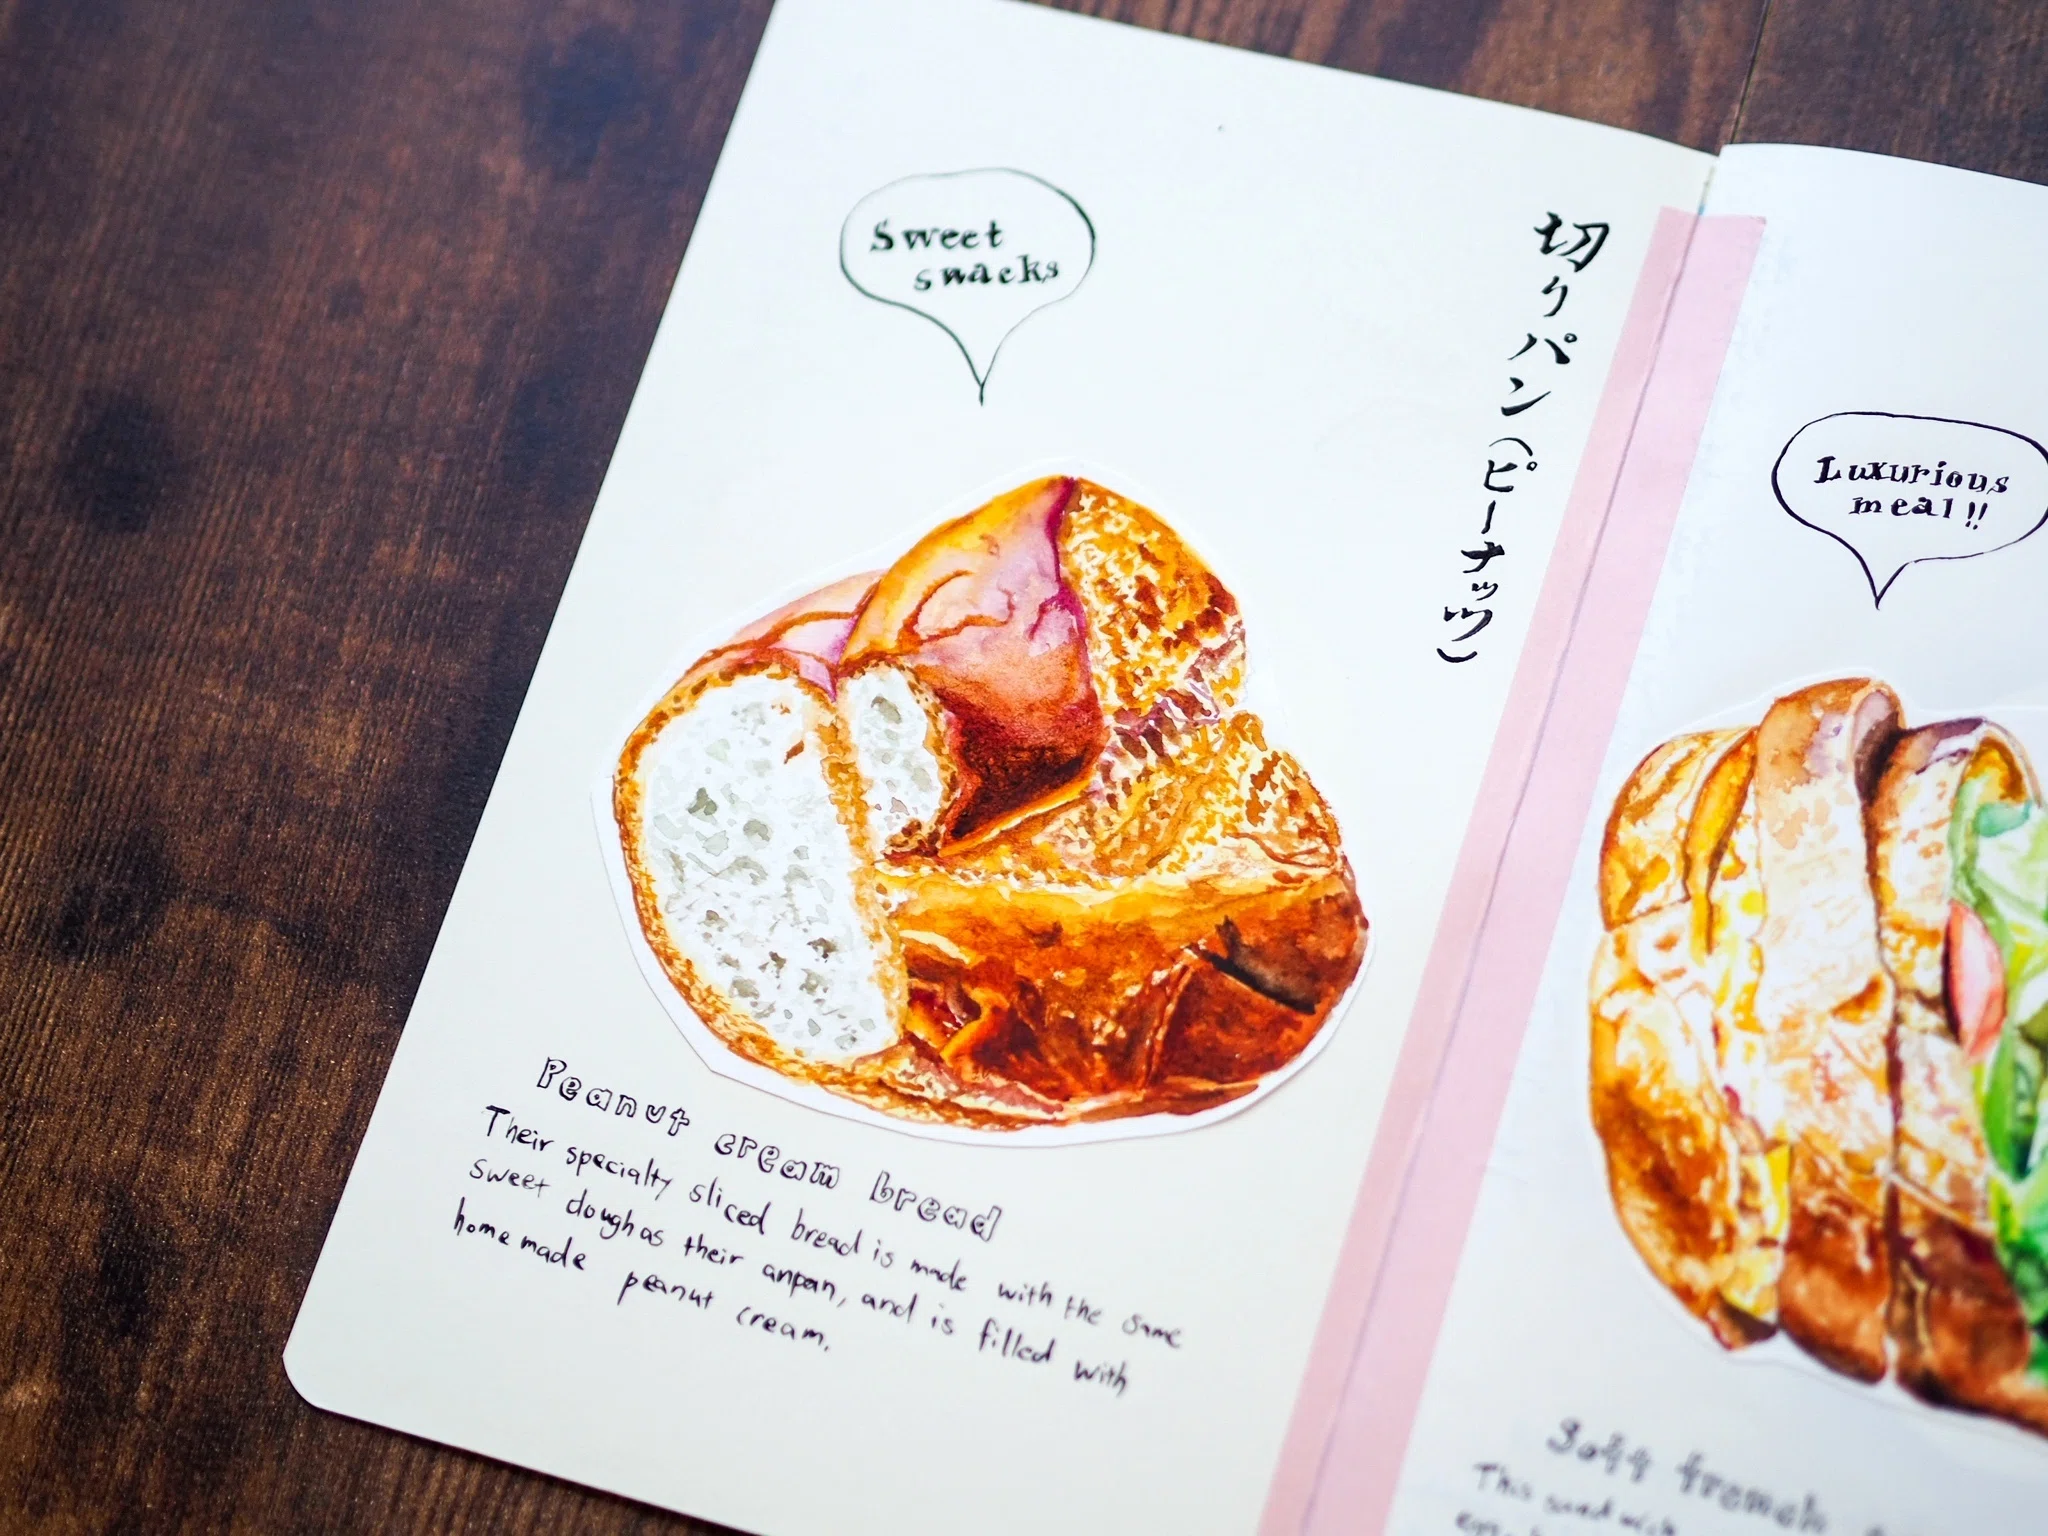 Sweet
snacks
切りパン(ピーナッツ)
Peanut cream bread
Their specialty sliced bread is made with the same
sweet dough as their anpan, and is filled with
homemade peanut cream.
Luxurious
meal!!
Soft french
This sandwich